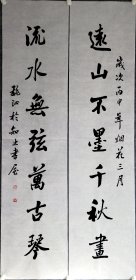 歲次丙申年烟花三月
遠山不墨千秋畫
流水無弦萬古琴
於知止書屋